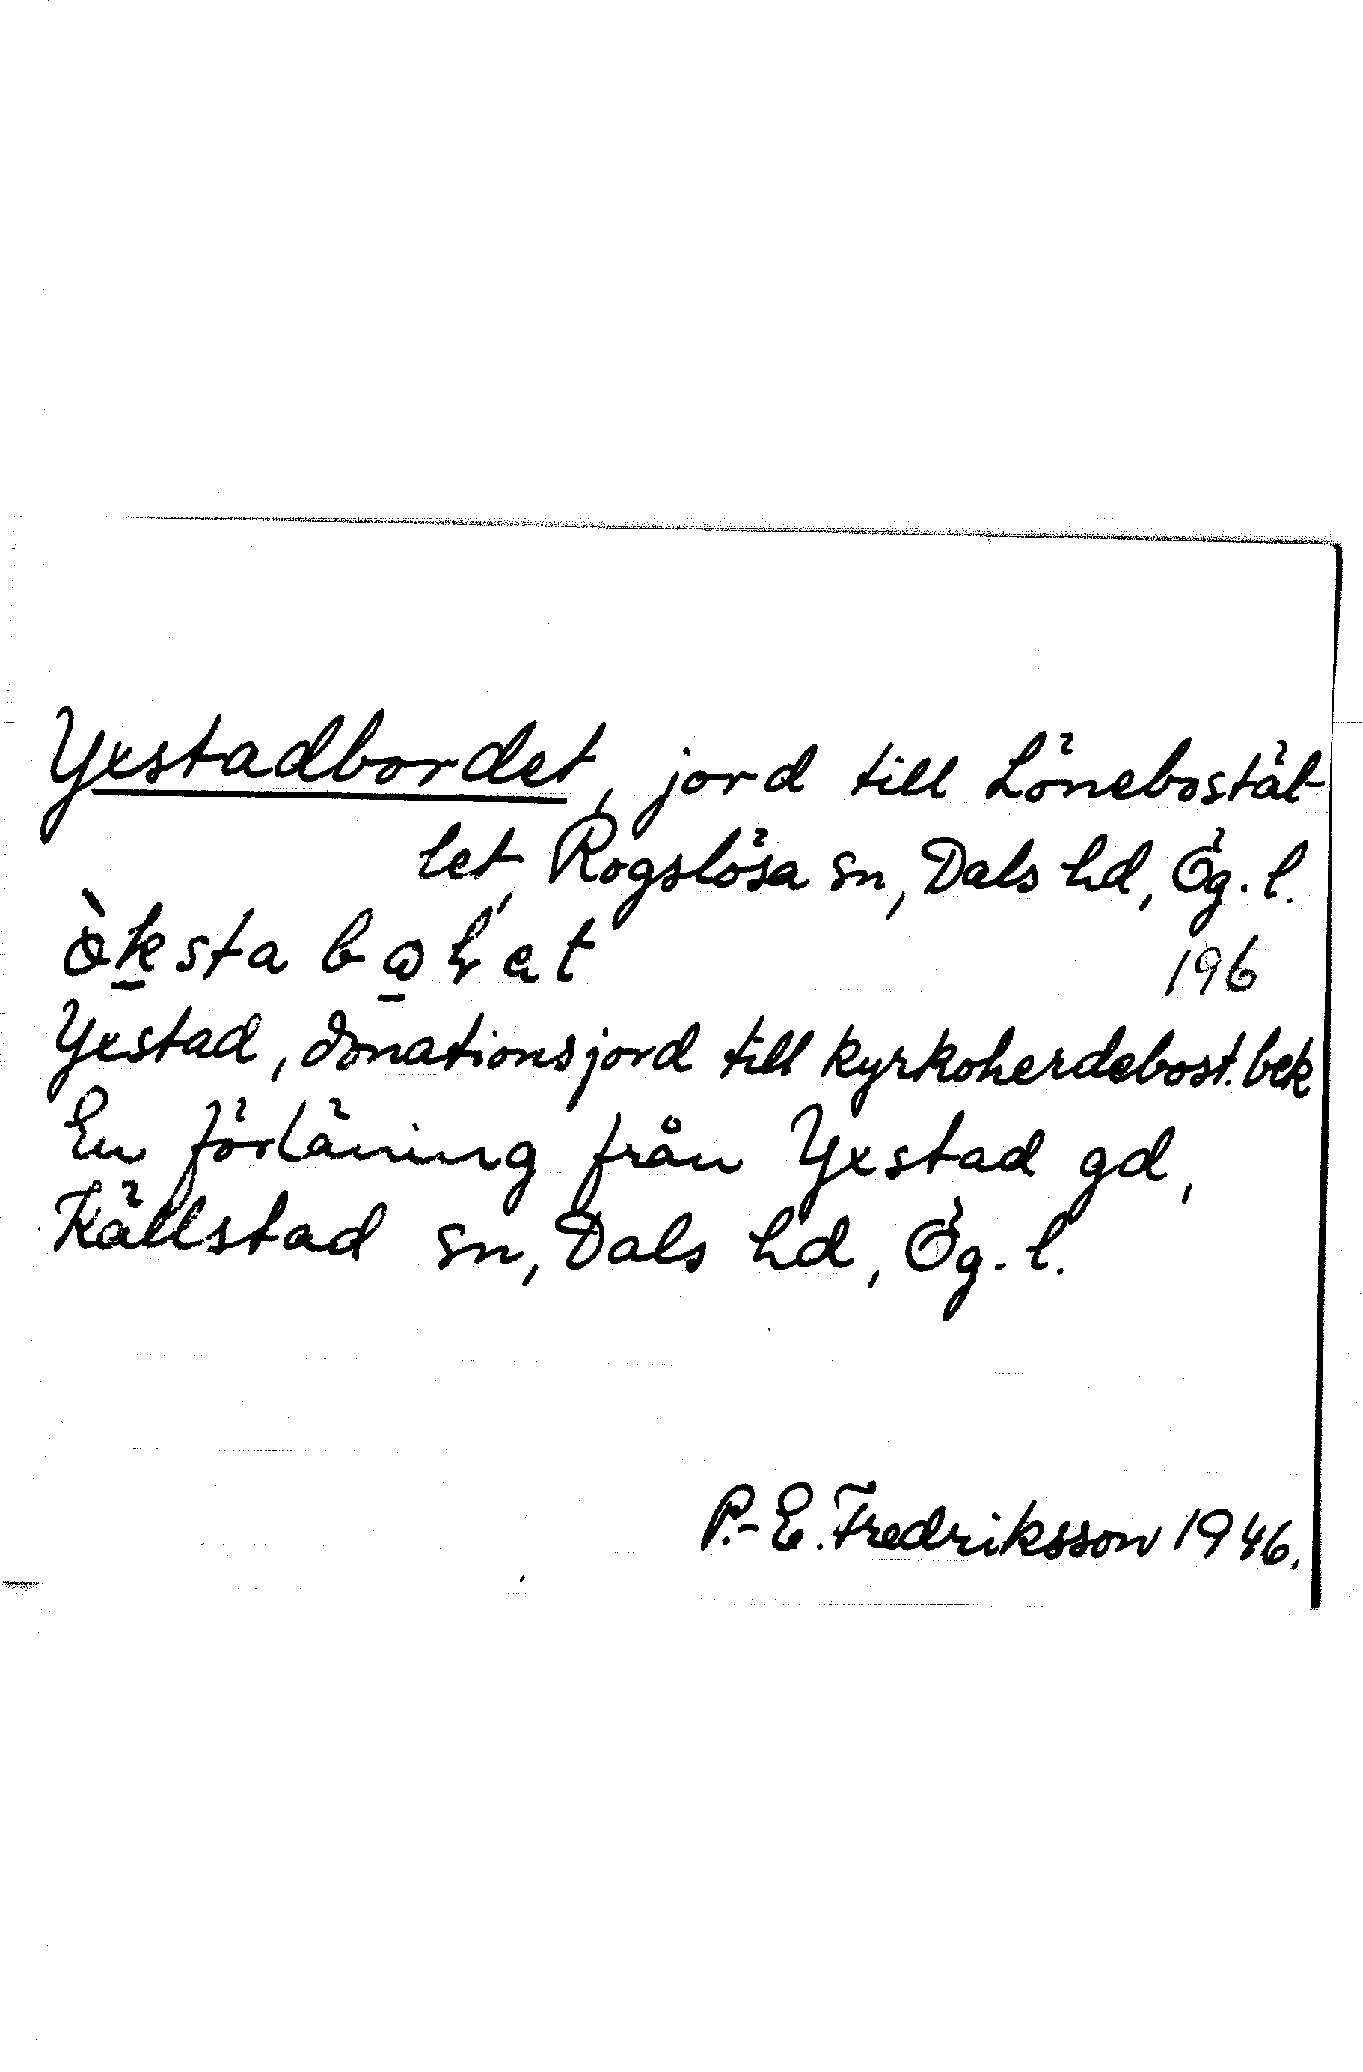 Yxstadbordet, jord till Lönebostäl-
let, Rogslösa sn, Dals hd, Ög. l.
196
Yxstad, donationsjord till kyrkoherdebost. bek
En förläning från Yxstad gd,
Källstad sn, Dals hd, Ög. l.
P.-E. Fredriksson 1946.